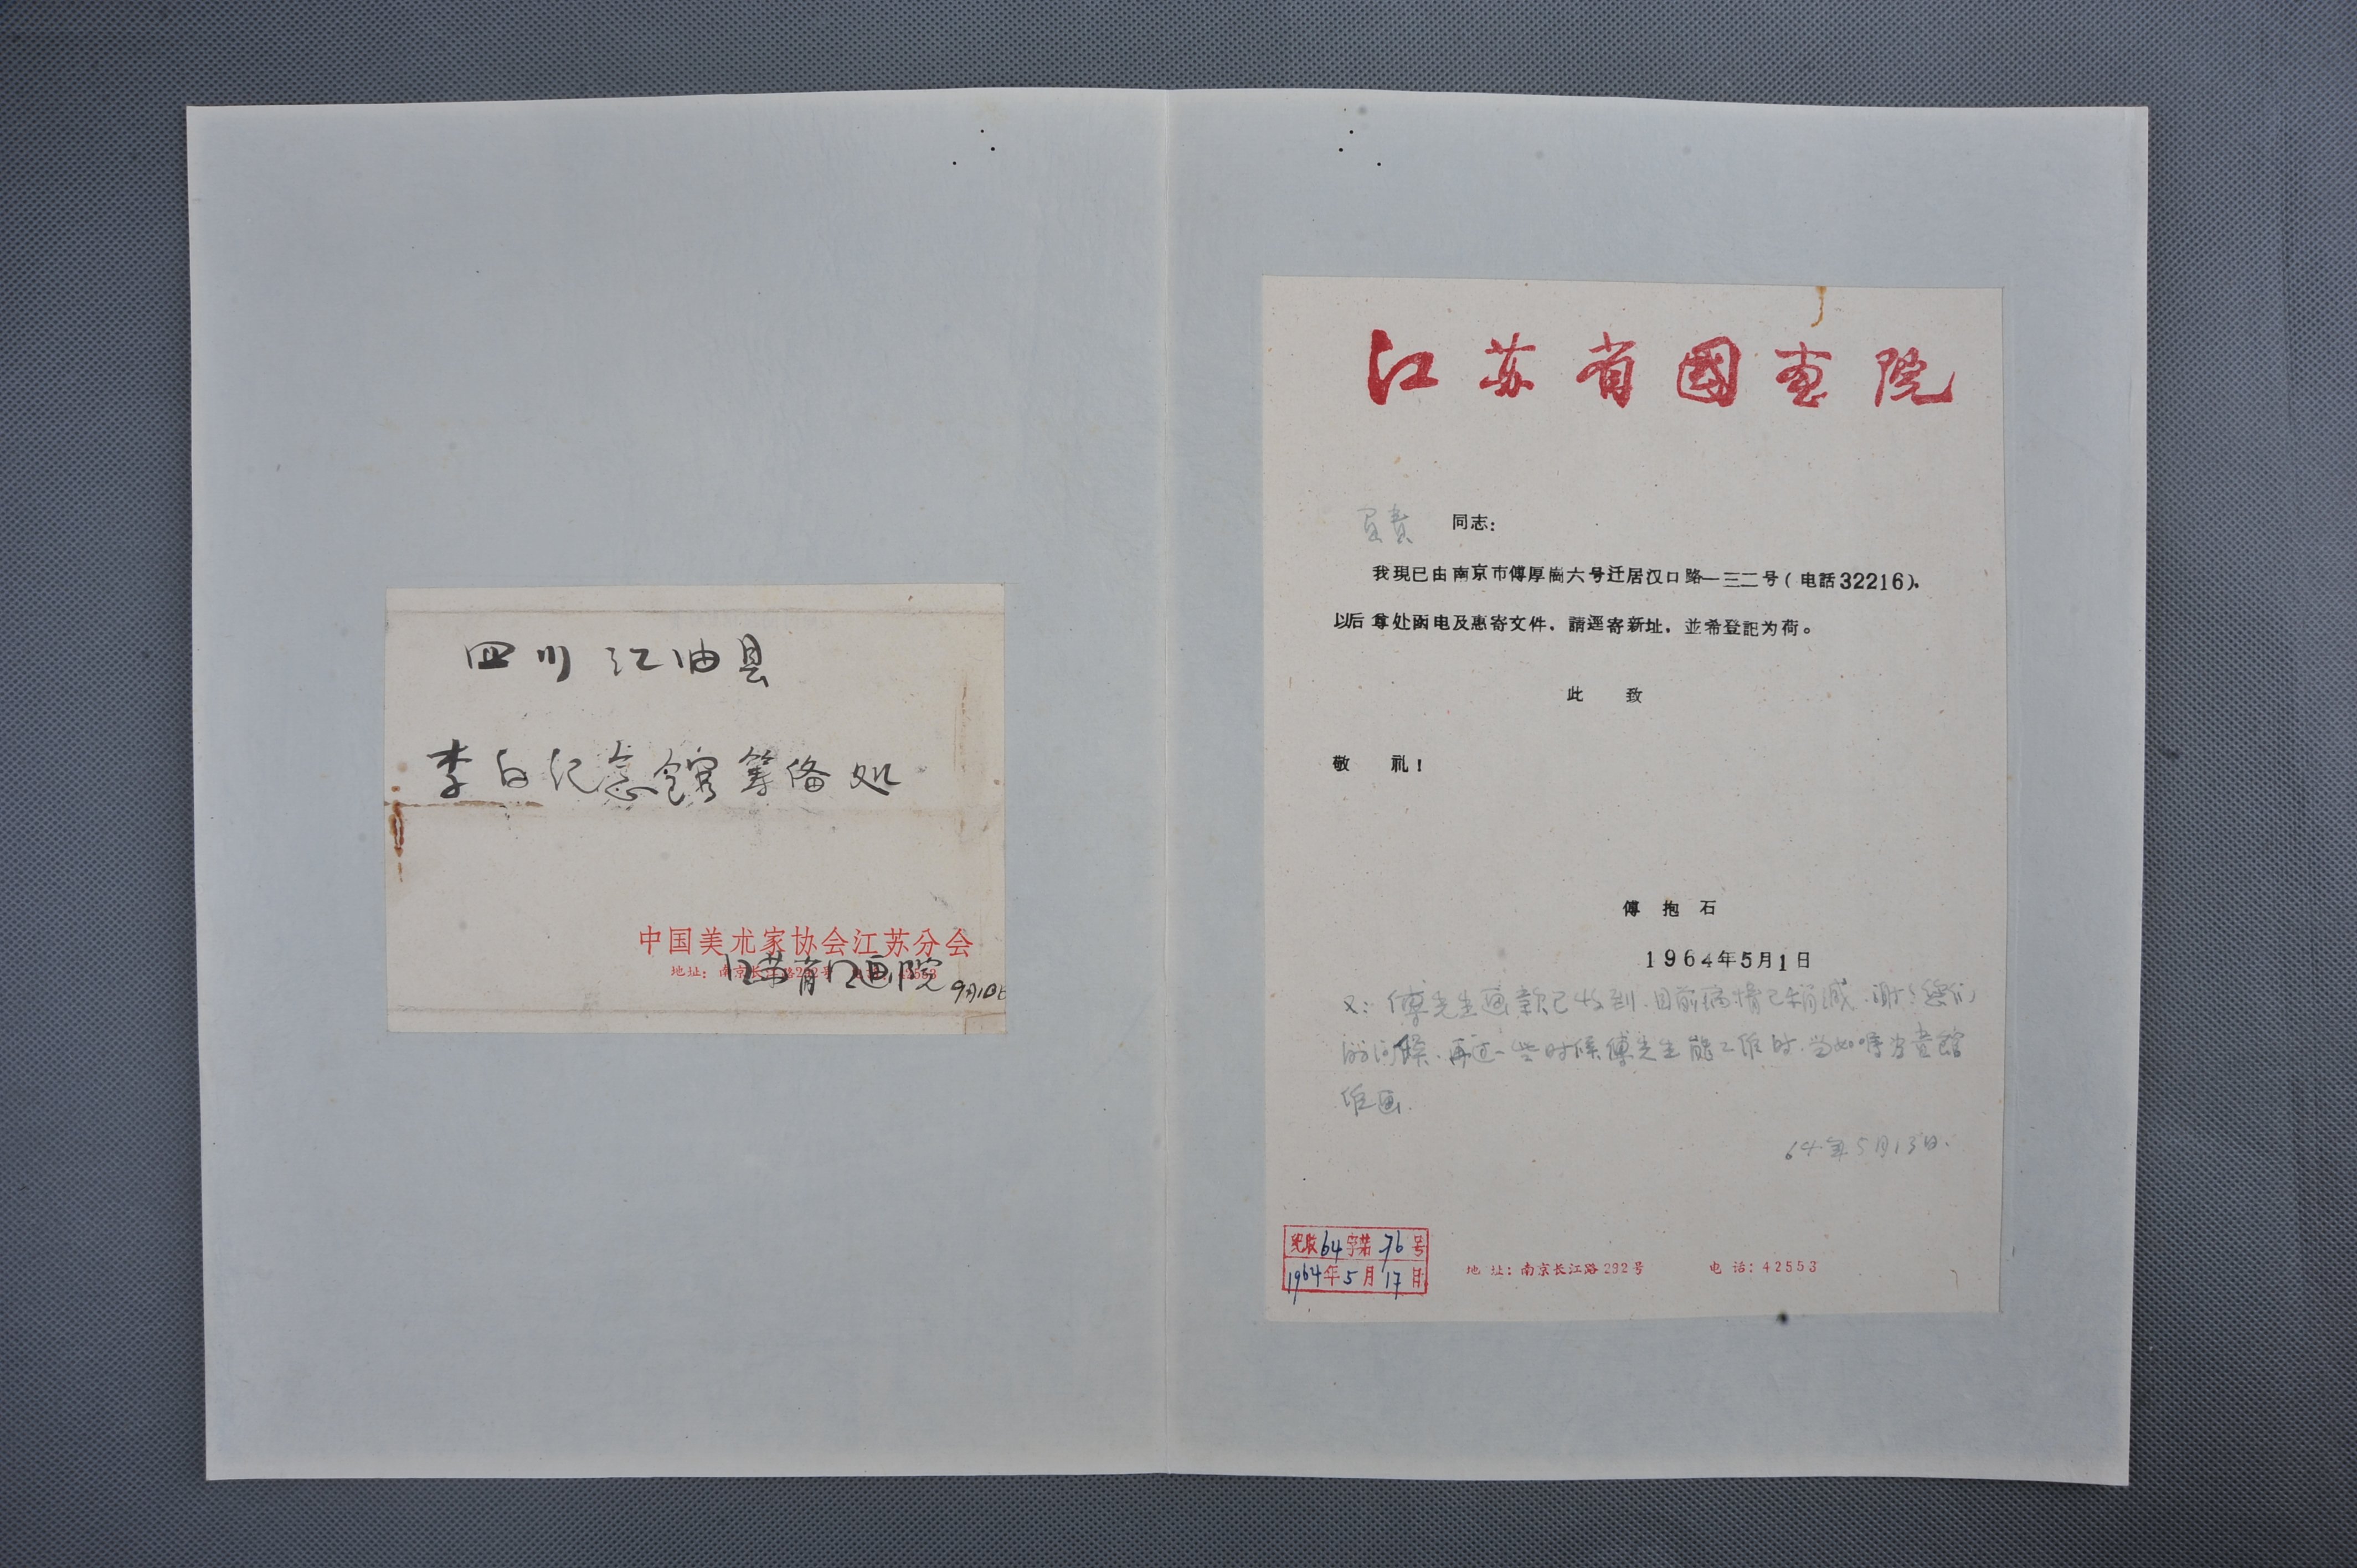 四川江油县
李白纪念館筹备处
中国美朮家协会江苏分会
地址：南京长江路292号 电话：42553
江苏省国画院
9月10日
江苏省國画院
同志：
我現已由南京市傅厚崗六号迁居汉口路一三二号（电話32216）。
以后尊处函电及惠寄文件，請逕寄新址，並希登記为荷。
此 致
敬 礼！
傅 抱 石
1964年5月1日
又：傅先生画款已收到．目前病情已稍减．谢谢您们
的问候．再过一些时候傅先生能工作时．当如嘱为贵館
作画．
64年5月13日．
收64字第76号
1964年5月17日
地 址：南京长江路292号 电 话：42553